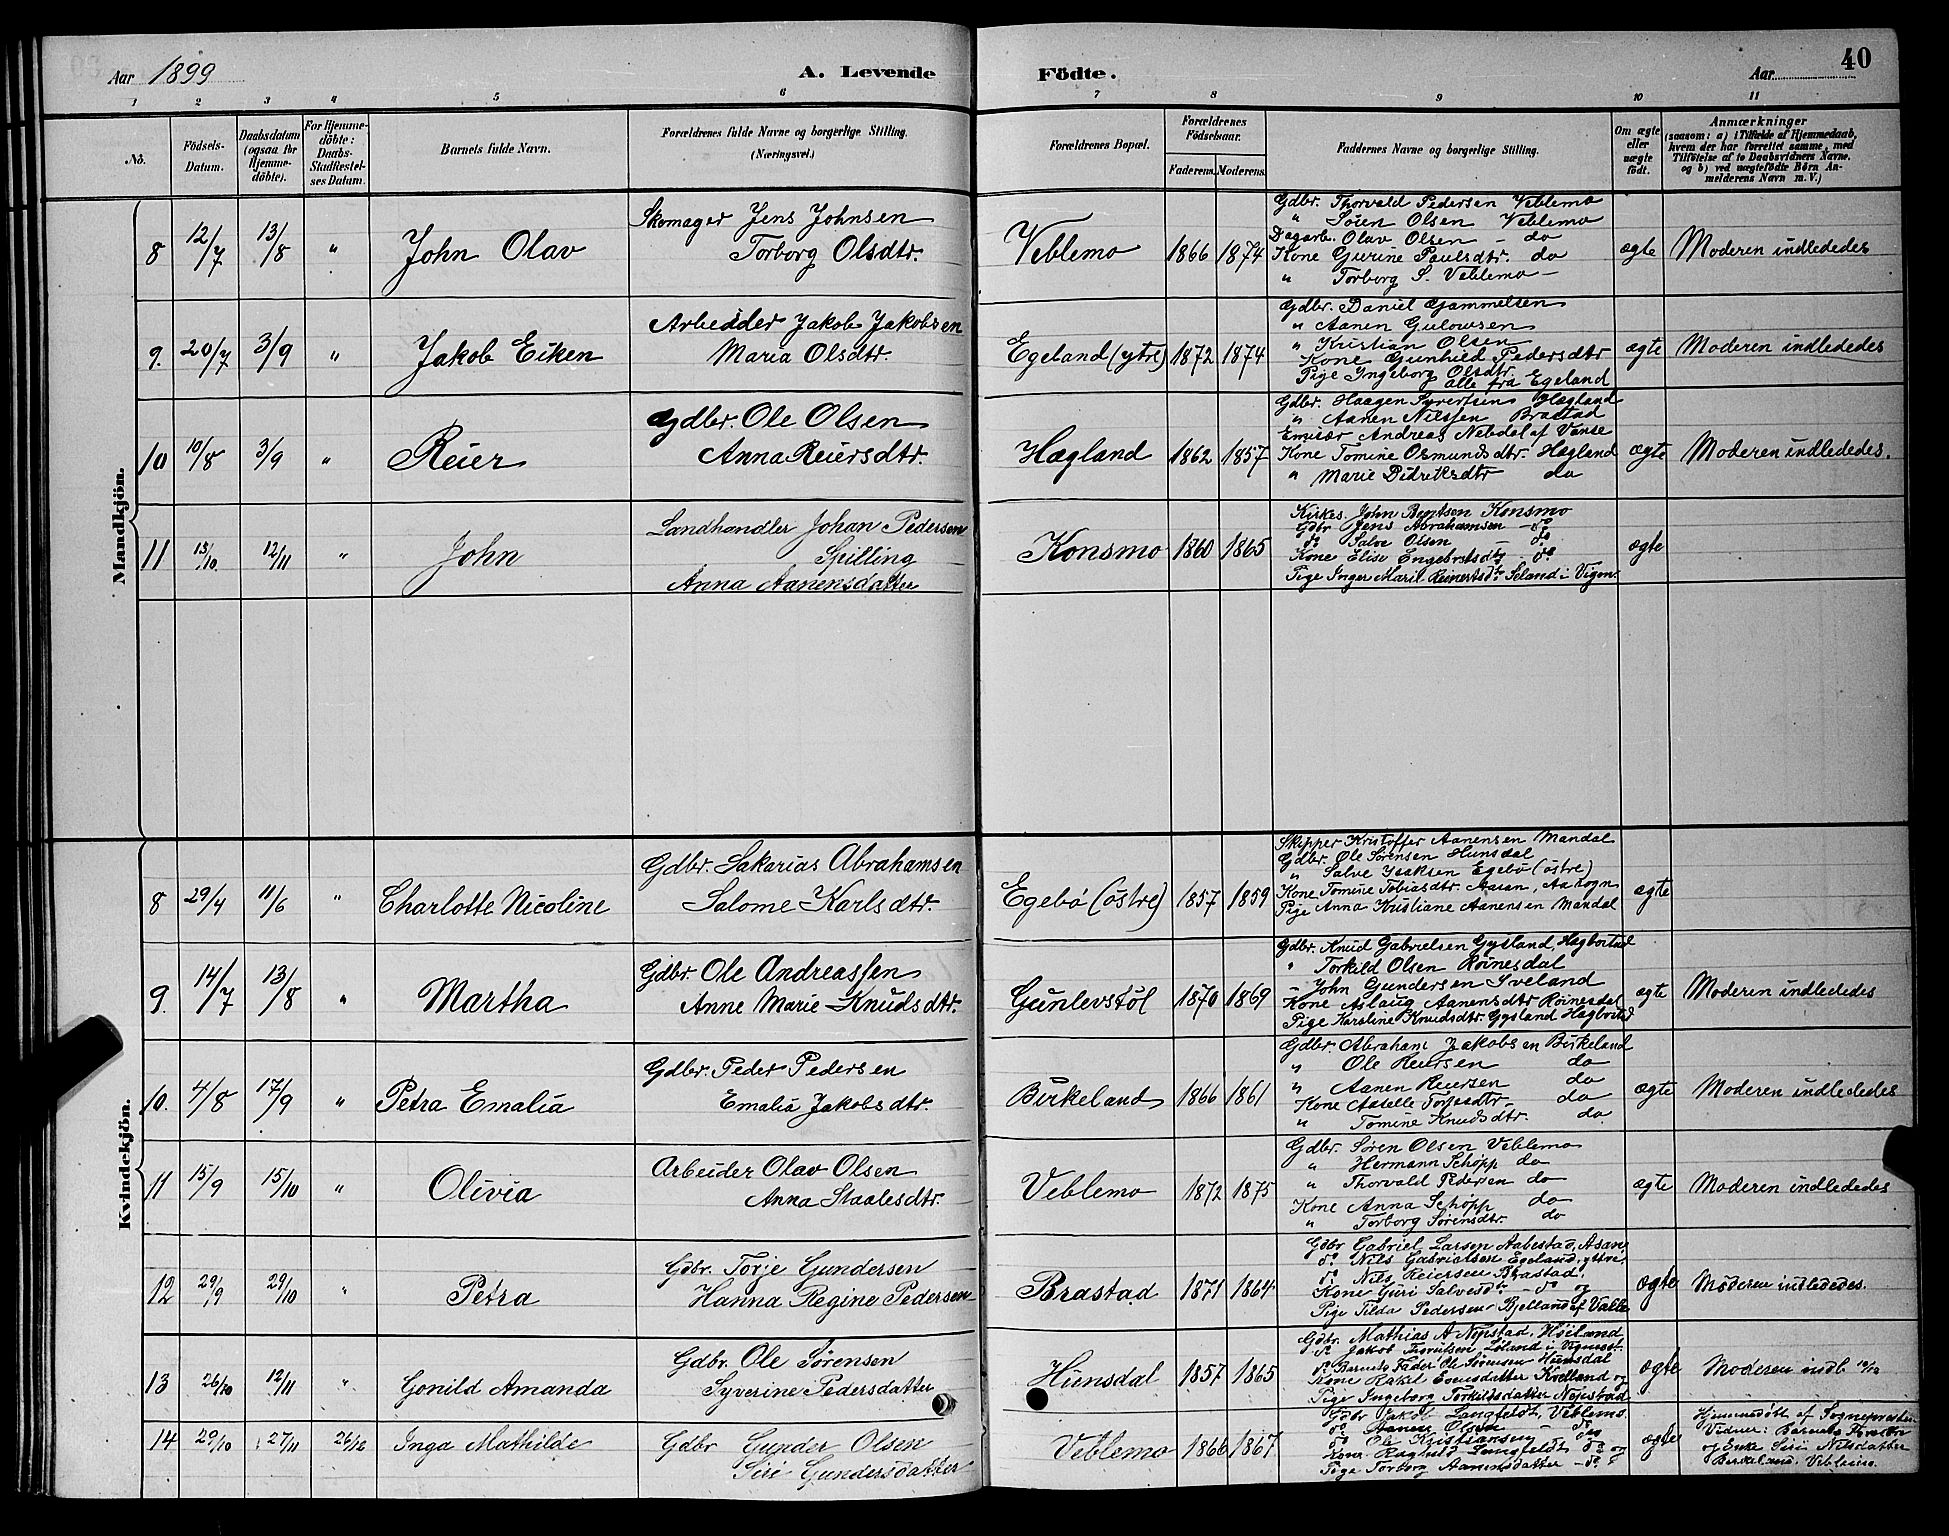 Aar 1899
A. Levende Födte.
Aar
40
1 2 3 4 5 6 7 8 9 10 11
No.
Födsels-Datum.
Daabsdatum (ogsaa for Hjemme-döbte).
For Hjemme-döbte: Daabs-Stadfæstel-ses Datum.
Barnets fulde Navn.
Forældrenes fulde Navne og borgerlige Stilling. (Næringsvei.)
Forældrenes Bopæl.
Forældrenes Födselsaar.
Faderens. Moderens.
Faddernes Navne og borgerlige Stilling.
Om ægte eller uægte födt.
Anmærkninger
(saasom: a) i Tilfælde af Hjemmedaab,
hvem der har forrettet samme, med
Tilföielse af to Daabsvidners Navne,
og b) ved uægtefödte Börn An-
melderens Navn m. V.)
Mandkjön.
8 12/7 13/8 " John Olav
Skomager Jens Johnsen
Torborg Olsdtr.
Veblemo 1866 1874
Gdbr. Thorvald Pedersen Veblemo
" Sören Olsen Veblemo
Dagarb. Olav Olsen - do
Kone Gurine Paulsdtr. do
" Torborg S. Veblemo -
ægte Moderen indlededes
9. 20/7 3/9 " Jakob Eiken
Arbeider Jakob Jakobsen
Maria Olsdtr.
Egeland (ytre) 1872 1874
Gdbr. Daniel Gammelsen
" Aanen Gulowsen
" Kristian Olsen
Kone Gunhild Pedersdtr
Pige Ingeborg Olsdtr.
alle fra Egeland
ægte Moderen indlededes
10 10/8 3/9 " Reier
Gdbr. Ole Olsen
Anna Reiersdtr.
Hægland 1862 1857
Gdbr. Haagen Syvertsen Hægland
" Aanen Nilssen Brastad
Emisær Andreas Nebdal af Vanse
Kone Tomine Osmundsdtr. Hægland
" Marie Didriksdtr do
ægte Moderen indlededes.
11 15/10. 12/11 " John
Landhandler Johan Pedersen
Spilling
Anna Aanensdatter
Konsmo 1860 1865
Kirkes. John Bentsen Konsmo
Gdbr Jens Abrahamsen - do
do Salve Olsen - do
Kone Elise Engebretsdtr - do
Pige Inger Maril Reinertsdtr Seland i Vigm.
ægte
Kvindekjön.
8 29/4 11/6 " Charlotte Nicoline
Gdbr. Sakarias Abrahamsen
Salome Karlsdtr.
Egebö (östre) 1857 1859
Skipper Kristoffer Aanensen Mandal
Gdbr. Ole Sörensen Hunsdal
" Salve Isaksen Egebö (östre)
Kone Tomine Tobiasdtr. Aasan, Aa sogn
Pige Anna Kristiane Aanensen Mandal
ægte
9. 14/7 13/8 " Martha
Gdbr. Ole Andreassen
Anne Marie Knudsdtr.
Gunlevstöl 1870 1869
Gdbr. Knud Gabrielsen Gysland, Hægbostad
" Torkild Olsen Röinesdal
- John Gundersen Iveland
Kone Aslaug Aanensdtr Röinesdal
Pige Karoline Knudsdtr. Gysland Hægbostad
ægte Moderen indlededes
10. 4/8 17/9 " Petra Emalia
Gdbr. Peder Pedersen
Emalia Jakobsdtr.
Birkeland 1866 1861
Gdbr. Abraham Jakobsen Birkeland
" Ole Reiersen do
" Aanen Reiersen do
Kone Aselle Torjesdtr. do
" Tomine Knudsdtr. do
ægte Moderen indlededes
11 15/9 15/10 " Olivia
Arbeider Olav Olsen
Anna Staalesdtr.
Veblemo 1872 1875
Gdbr. Sören Olsen Veblemo
" Hermann Schöpp do
" Thorvald Pedersen do
Kone Anna Schöpp do
" Torborg Sörensdtr. do
ægte Moderen indlededes
12 29/9 29/10 " Petra
Gdbr. Torje Gundersen
Hanna Regine Pedersen
Brastad 1871 1864
Gdbr Gabriel Larsen Aabestad, Asan,
do Nils Gabrielsen Egeland, yttre,
do Nils Reiersen Brastad,
Kone Guri Salvesdtr - do og
Pige Tilda Pedersen Bjelland af Valle
ægte Moderen indlededes.
13 26/10 12/11 " Gonild Amanda
Gdbr. Ole Sörensen
Syverine Pedersdatter
Hunsdal 1857 1865
Gdbr. Mathias A Nepstad, Höiland
do Jakob Lölund i Vigmost.
do Barnets Fader Ole Sörensen Hunsdal
Kone Rakel Evensdatter Kvelland og
Pige Ingeborg Torkildsdatter Nepstad
ægte Moderen indl. 12/12
14 29/10 27/11 26/12 Inga Mathilde
Gdbr Gunder Olsen
Siri Gundersdatter
Veblemo 1866 1867
Gdbr Jakob Langfeldt, Veblemo.
do Aanen Olsen - do
do Ole Kristiansen - do
Kone Ragnild Langfeldt do og
Pige Torborg Aanensdatter - do -
ægte
Hjemmedöbt af Sognepresten
Vidner: Barnets Forældre
og Enke Siri Nilsdatter
Birkeland, Veblemo.